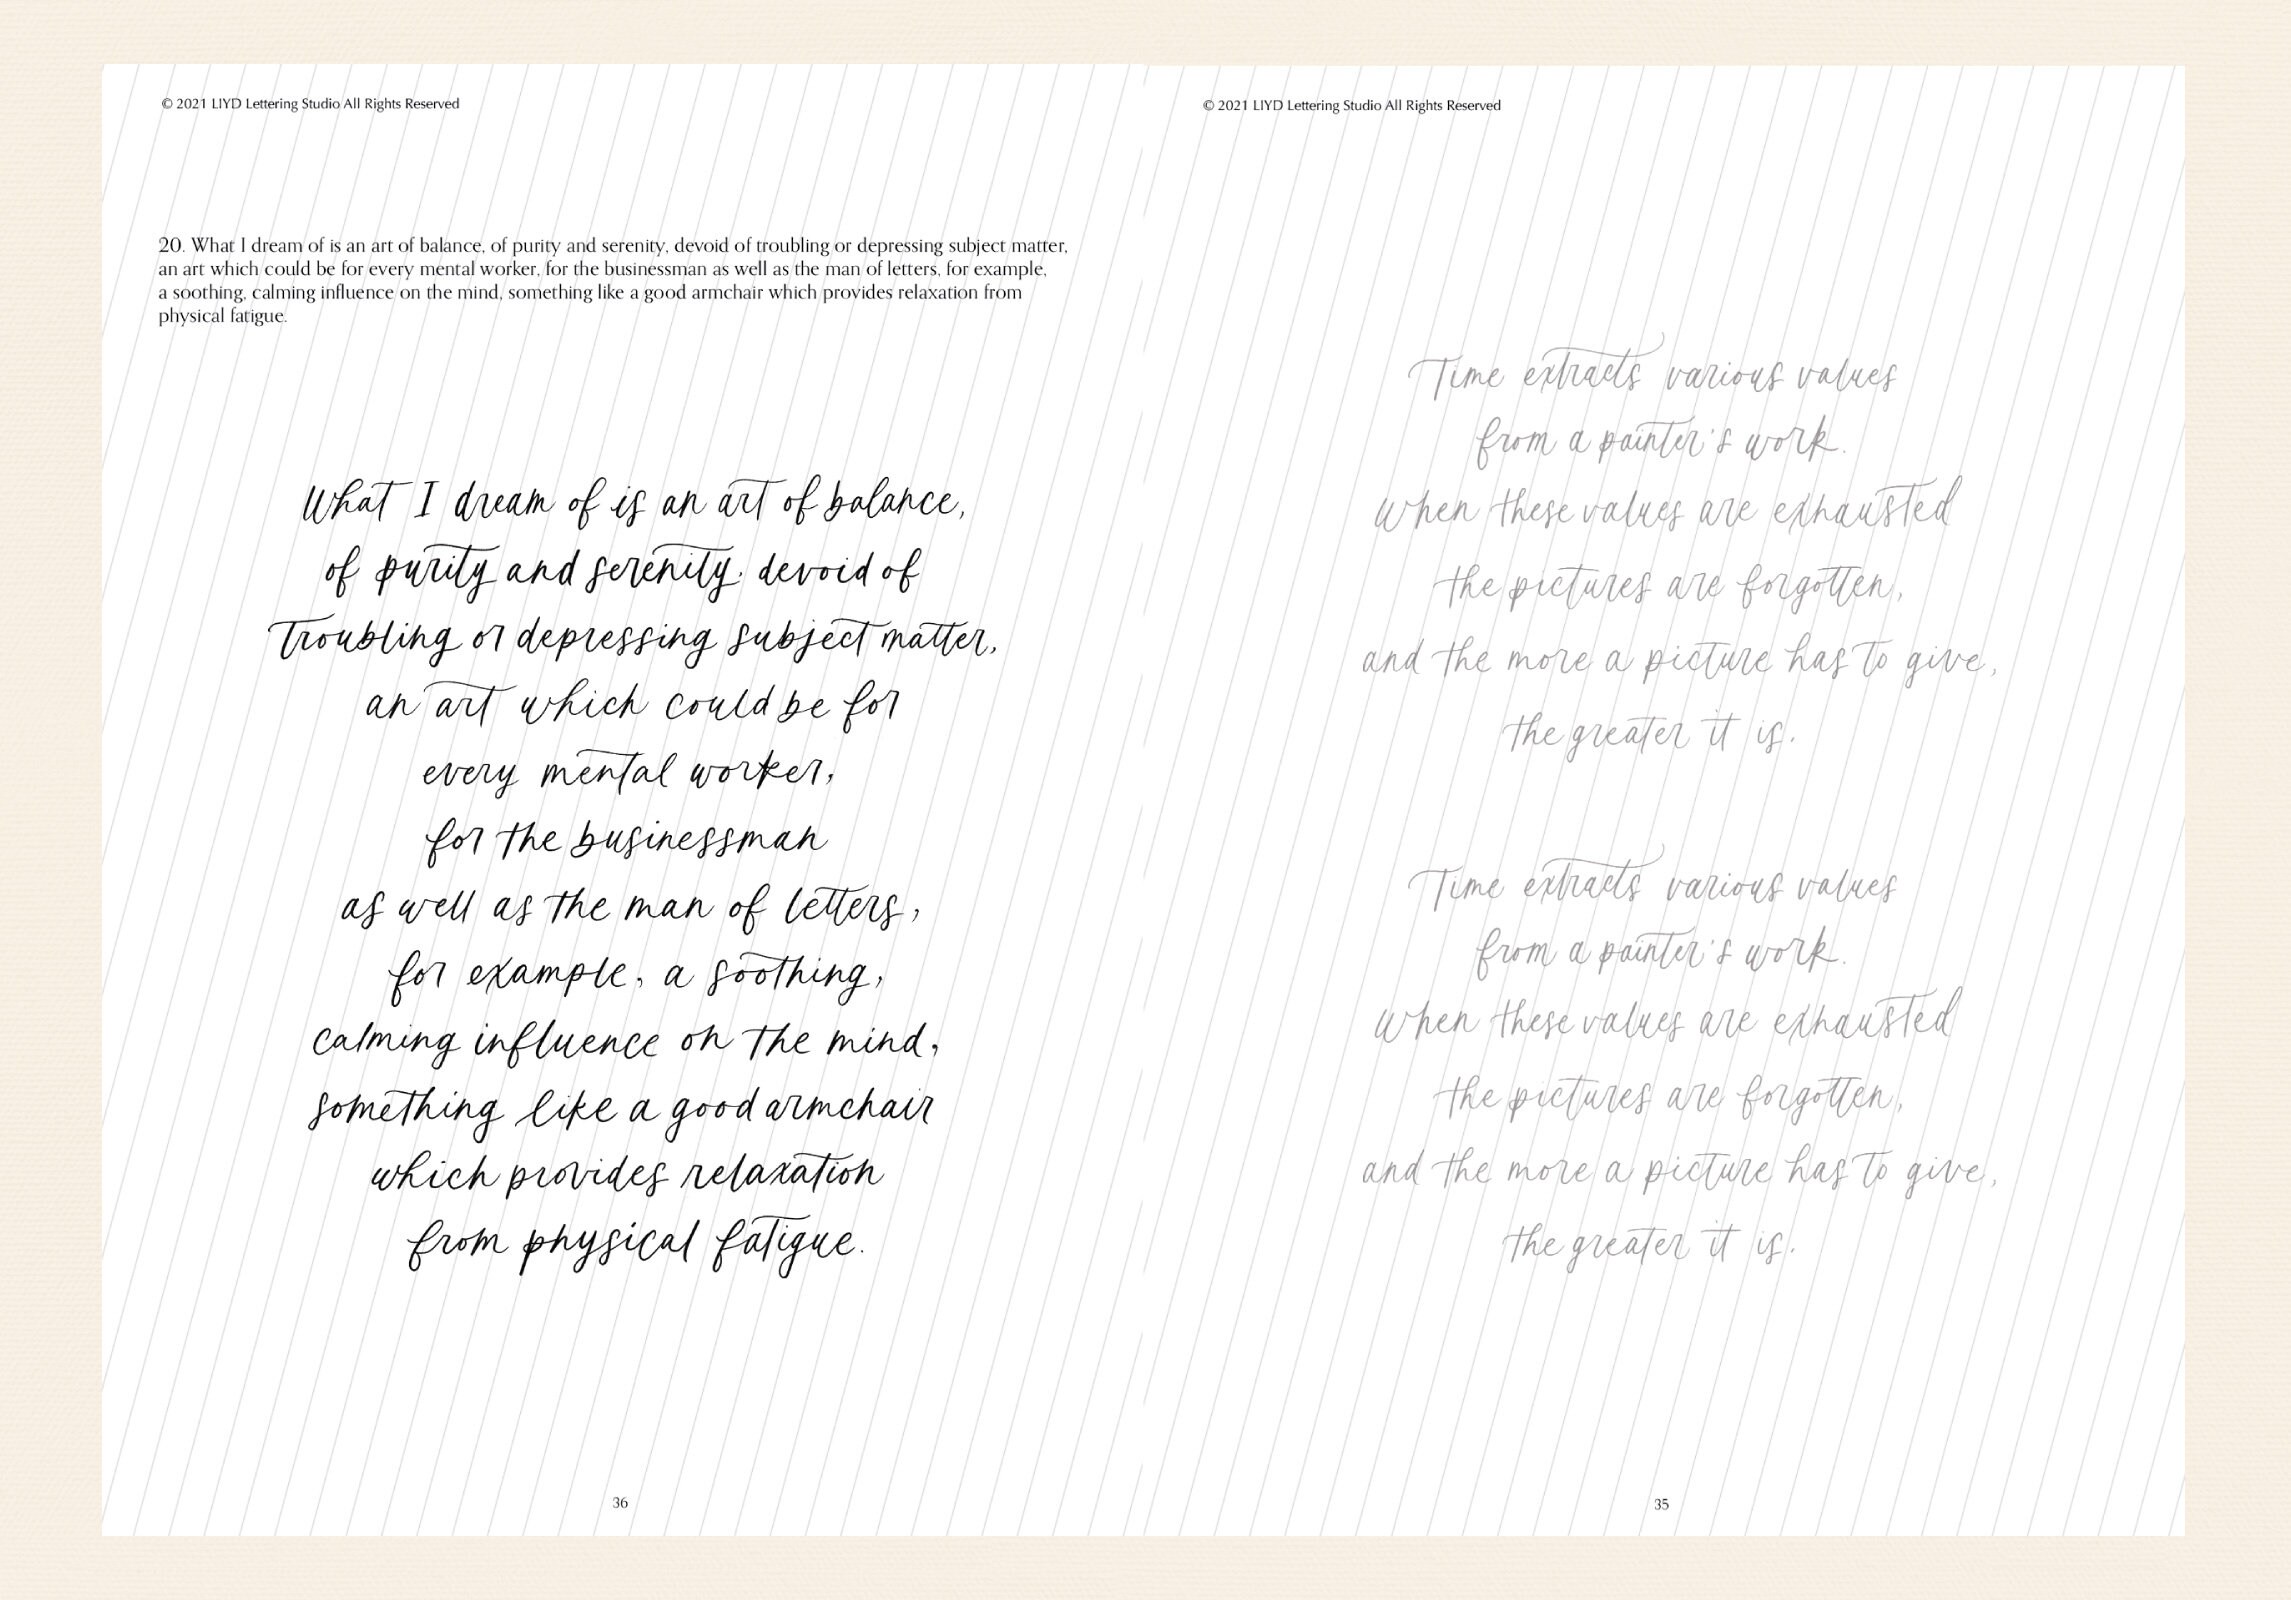 © 2021 LIYD Lettering Studio All Rights Reserved
20. What I dream of is an art of balance, of purity and serenity, devoid of troubling or depressing subject matter,
an art which could be for every mental worker, for the businessman as well as the man of letters, for example,
a soothing, calming influence on the mind, something like a good armchair which provides relaxation from
physical fatigue.
What I dream of is an art of balance,
of purity and serenity, devoid of
troubling or depressing subject matter,
an art which could be for
every mental worker,
for the businessman
as well as the man of letters,
for example, a soothing,
calming influence on the mind,
something like a good armchair
which provides relaxation
from physical fatigue.
36
© 2021 LIYD Lettering Studio All Rights Reserved
Time extracts various values
from a painter's work.
When these values are exhausted
the pictures are forgotten,
and the more a picture has to give,
the greater it is.
Time extracts various values
from a painter's work.
When these values are exhausted
the pictures are forgotten,
and the more a picture has to give,
the greater it is.
35